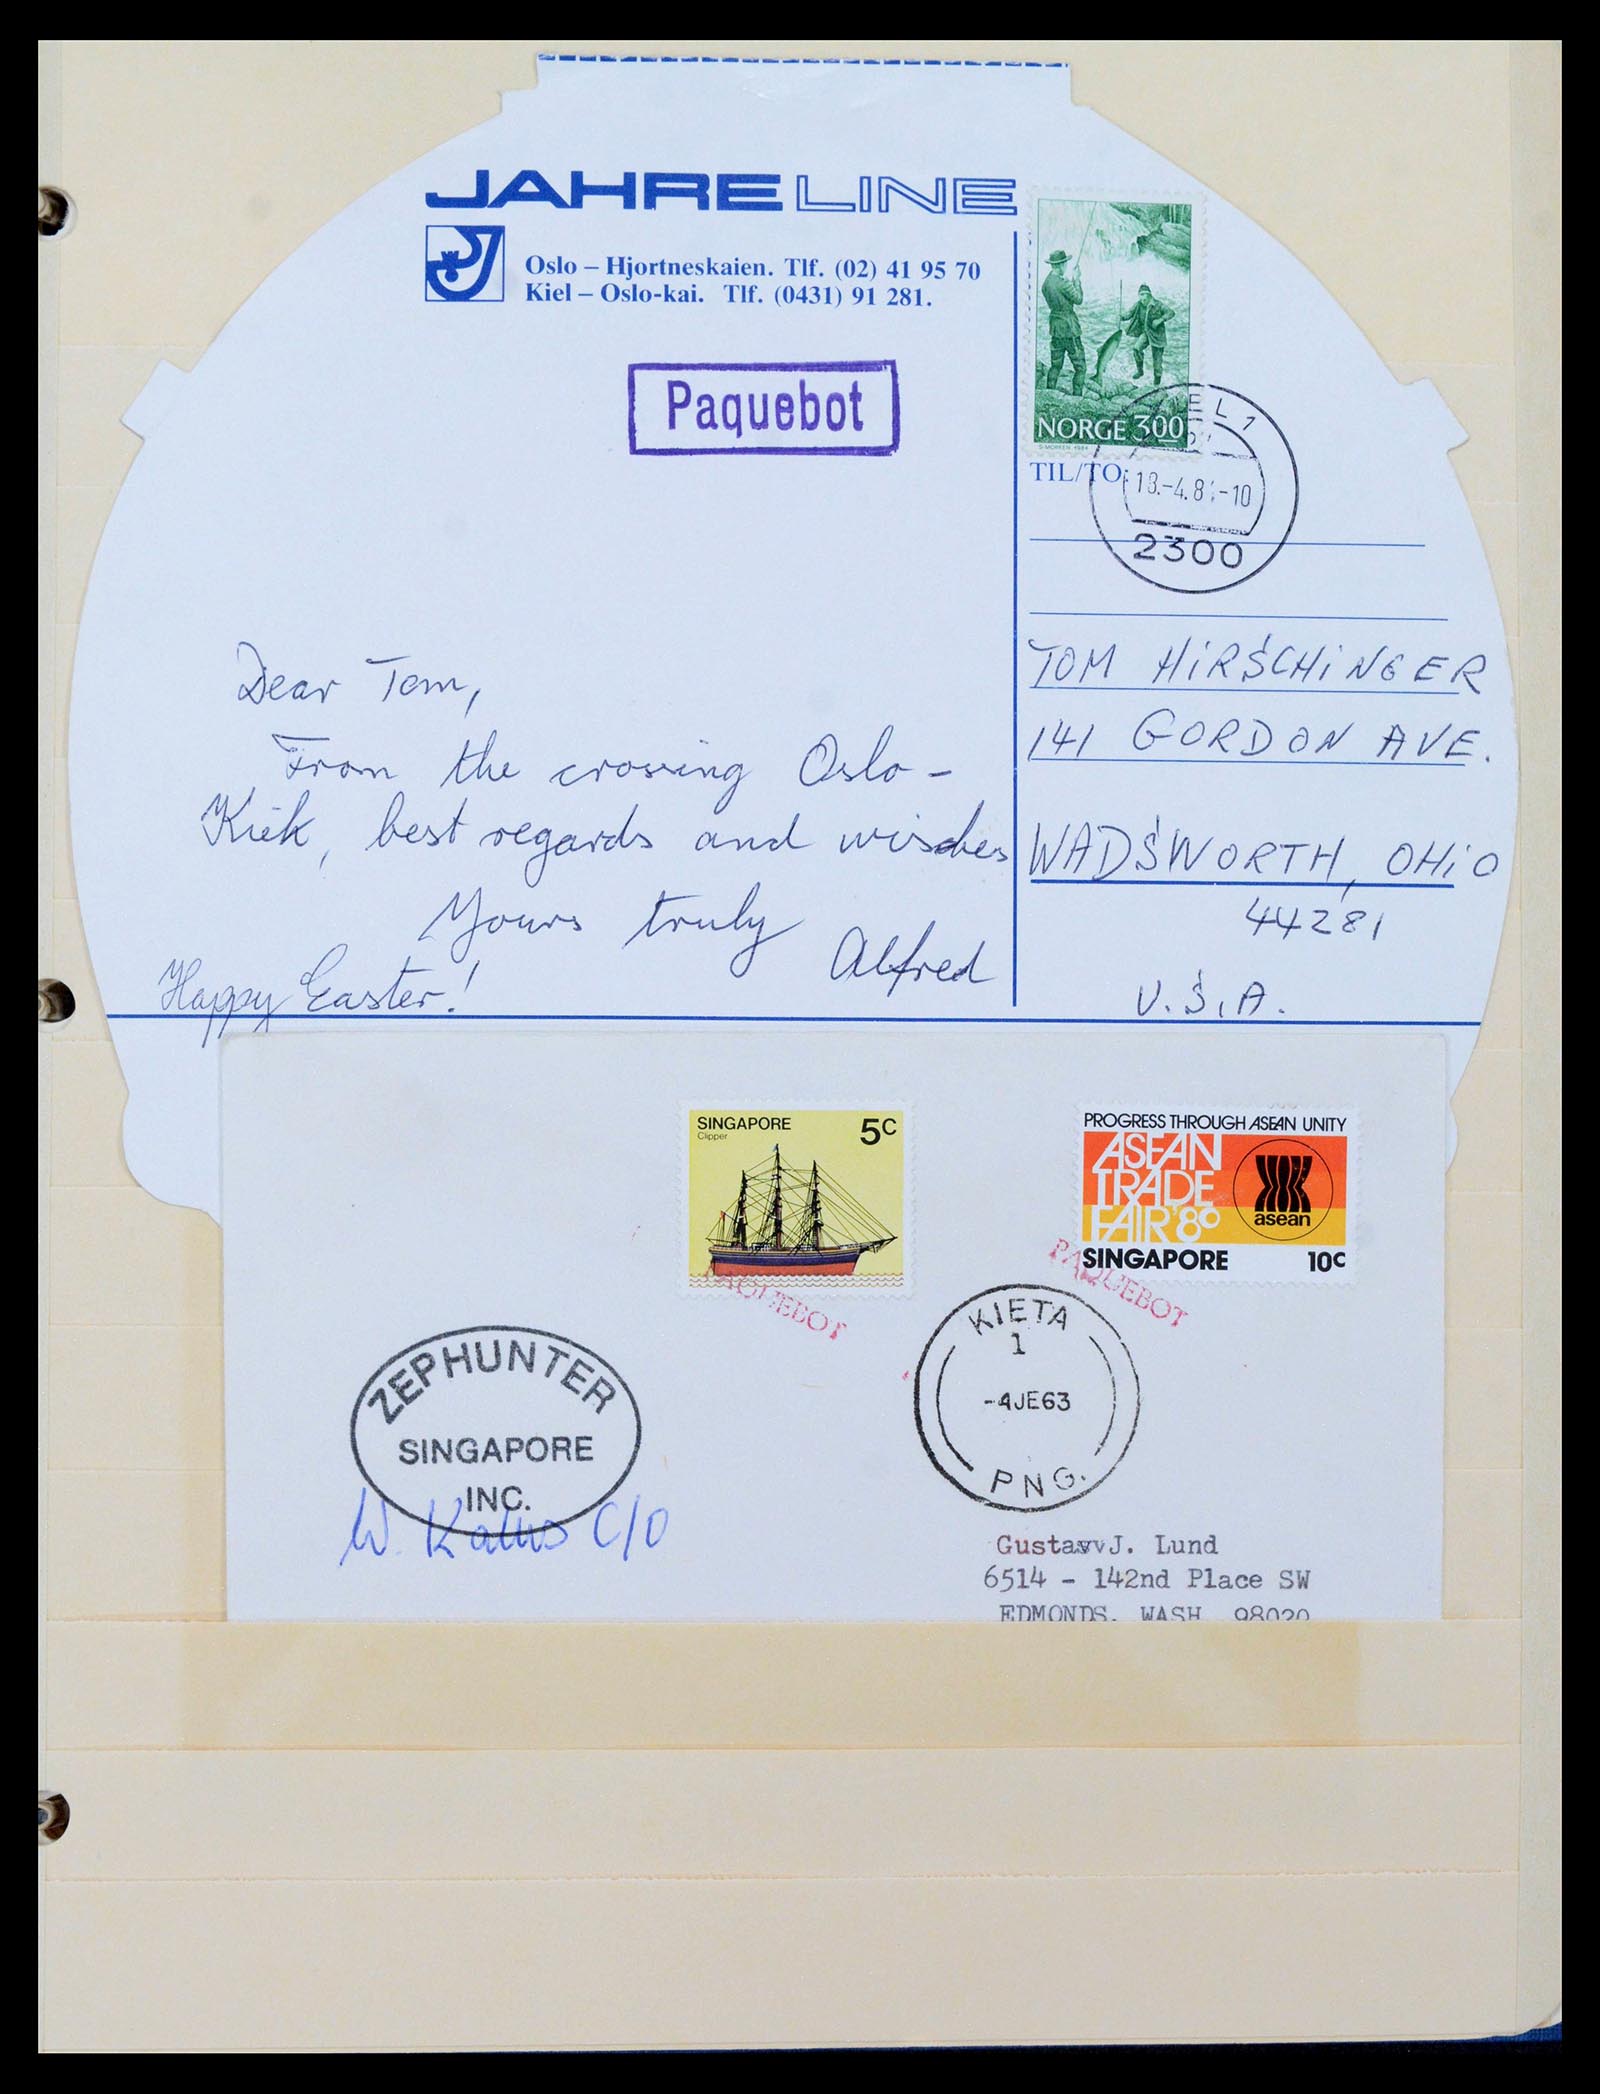 JAHRE LINE
Oslo – Hjortneskaien. Tlf. (02) 41 95 70
Kiel – Oslo-kai. Tlf. (0431) 91 281.
Paquebot
NORGE 300
S·MORKEN 1984
TIL/TO:
18.-4.8 -10
2300
Dear Tom,
From the crossing Oslo –
Kiek, best regards and wisches
Yours truly
Alfred
Happy Easter!
TOM HIRSCHINGER
141 GORDON AVE.
WADSWORTH, OHIO
44281
U.S.A.
SINGAPORE 5c
Clipper
PAQUEBOT
PROGRESS THROUGH ASEAN UNITY
ASEAN
TRADE
FAIR '80
asean
SINGAPORE 10c
PAQUEBOT
KIETA
1
-4JE63
PNG.
ZEPHUNTER
SINGAPORE
INC.
W. C/O
J. Lund
6514 - 142nd Place SW
EDMONDS, WASH 98020